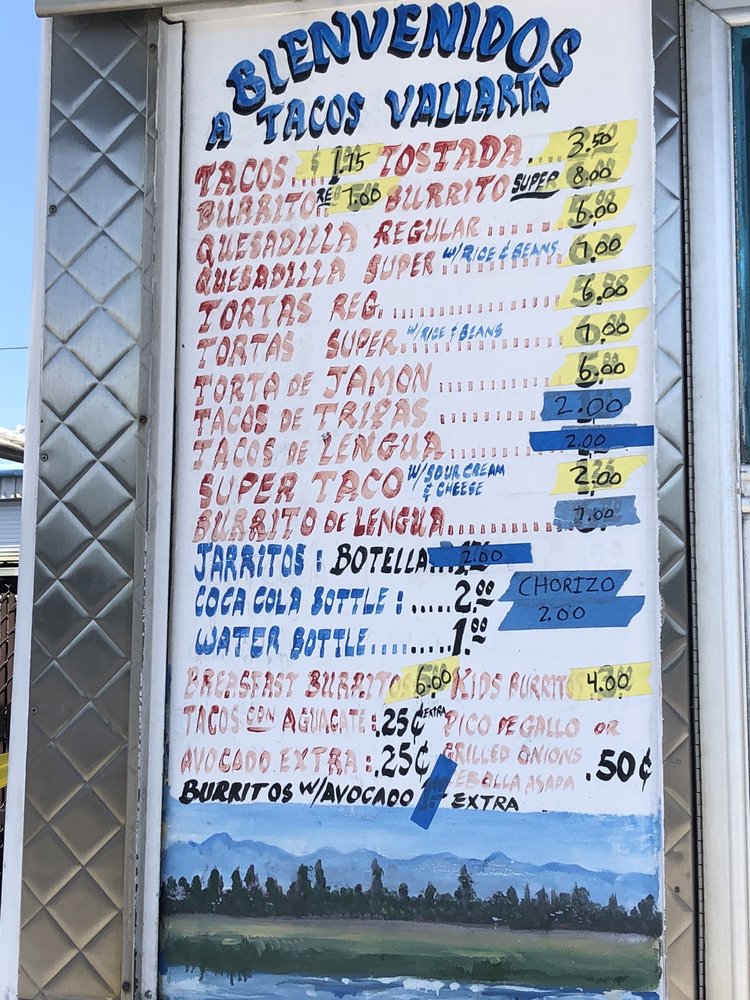 BIENVENIDOS
A TACOS VALLARTA
TACOS.... $1.75 TOSTADA.... 3.50
BURRITO REG 7.00 BURRITO SUPER 8.00
QUESADILLA REGULAR...... 6.00
QUESADILLA SUPER W/RICE & BEANS 7.00
TORTAS REG. .............. 6.00
TORTAS SUPER W/RICE & BEANS 7.00
TORTA DE JAMON .......... 6.00
TACOS DE TRIPAS .......... 2.00
TACOS DE LENGUA......... 2.00
SUPER TACO W/SOUR CREAM & CHEESE 2.00
BURRITO DE LENGUA.......... 7.00
JARRITOS : BOTELLA... 2.00
COCA COLA BOTTLE : ..... 2.00 CHORIZO 2.00
WATER BOTTLE......... 1.00
BREAKFAST BURRITOS 6.00 KIDS BURRITO 4.00
TACOS CON AGUACATE : .25¢ EXTRA PICO DE GALLO OR
AVOCADO EXTRA : .25¢ GRILLED ONIONS
CEBOLLA ASADA .50¢
BURRITOS W/AVOCADO EXTRA